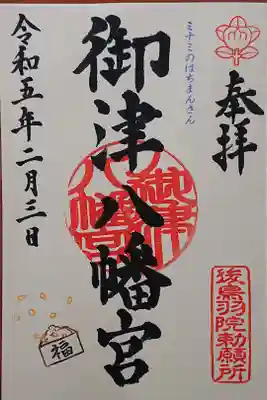 奉拝
ミナミのはちまんさん
御津八幡宮
御津八幡宮
後鳥羽院勅願所
令和五年二月三日
福